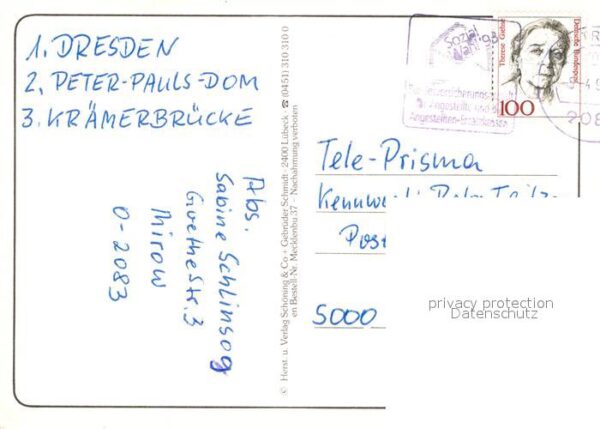 1. DRESDEN
2. PETER-PAULS-DOM
3. KRÄMERBRÜCKE
Abs.
Sabine Schlinsog
Goethestr. 3
Mirow
O-2083
© Herst. u. Verlag Schöning & Co + Gebrüder Schmidt · 2400 Lübeck ☎ (0451) 310 310 0
en Bestell-Nr. Mecklenbu 37 – Nachahmung verboten
Sozial
Therese Giehse
Deutsche Bundespost
100
Angestellte und
Angestellten-Ersatzkassen
208
Tele-Prisma
Kennwort:
Post
5000
privacy protection
Datenschutz